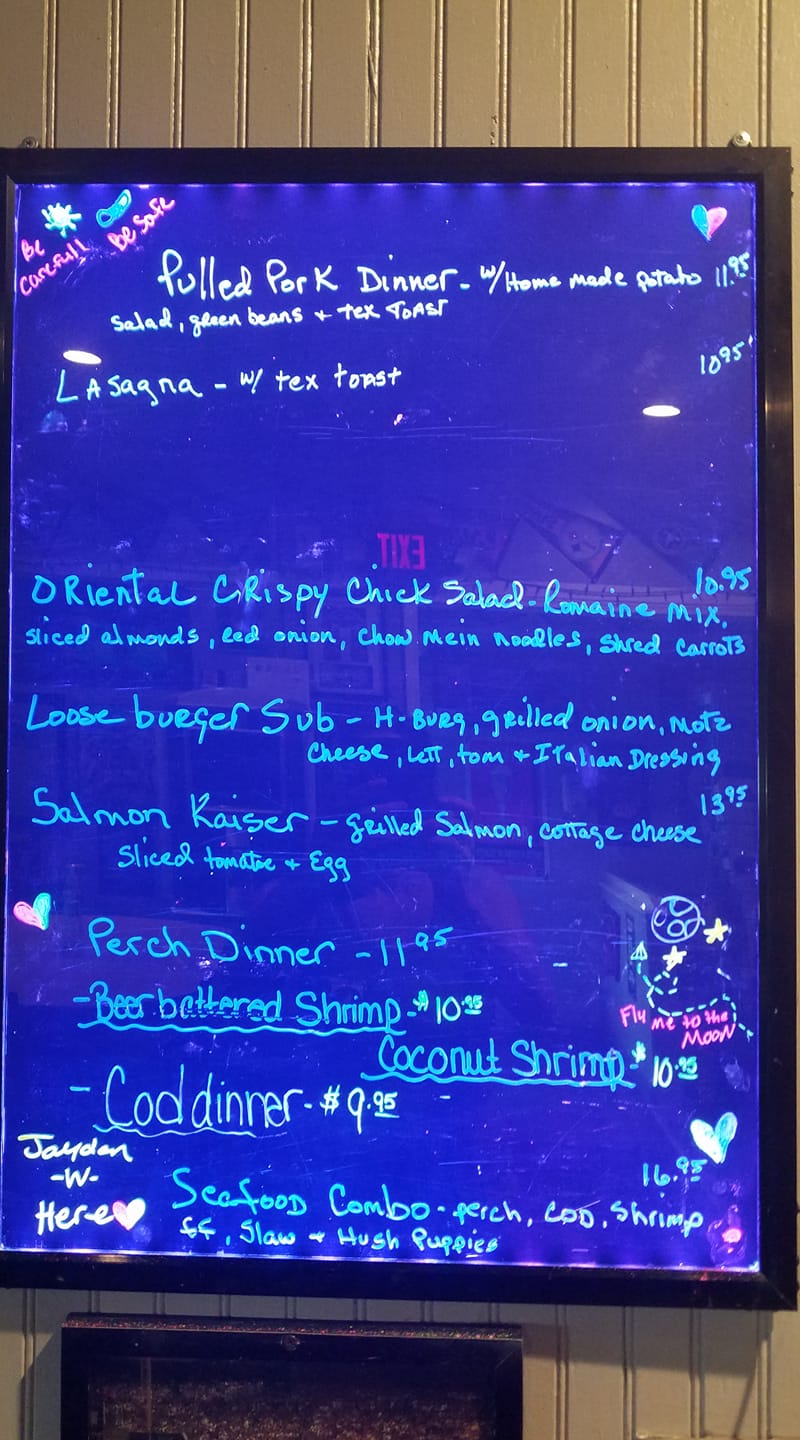 Be Carefull Be Safe
Pulled Pork Dinner - w/Home made potato 11.95
Salad, green beans + Tex Toast
Lasagna - w/ tex toast 10.95
EXIT
Oriental Crispy Chick Salad - Romaine Mix, 10.95
sliced almonds, Red onion, Chow Mein Noodles, Shred Carrots
Loose burger Sub - H-Burg, grilled onion, Motz
Cheese, Lett, tom + Italian Dressing
Salmon Kaiser - grilled Salmon, cottage cheese 13.95
Sliced tomatoe + Egg
Perch Dinner - 11.95
- Beer battered Shrimp - $10.95
Fly me to the Moon
Coconut Shrimp - $10.95
- Cod dinner - $9.95
Jayden
-W-
Here
16.95
Seafood Combo - perch, COD, Shrimp
FF, Slaw + Hush Puppies